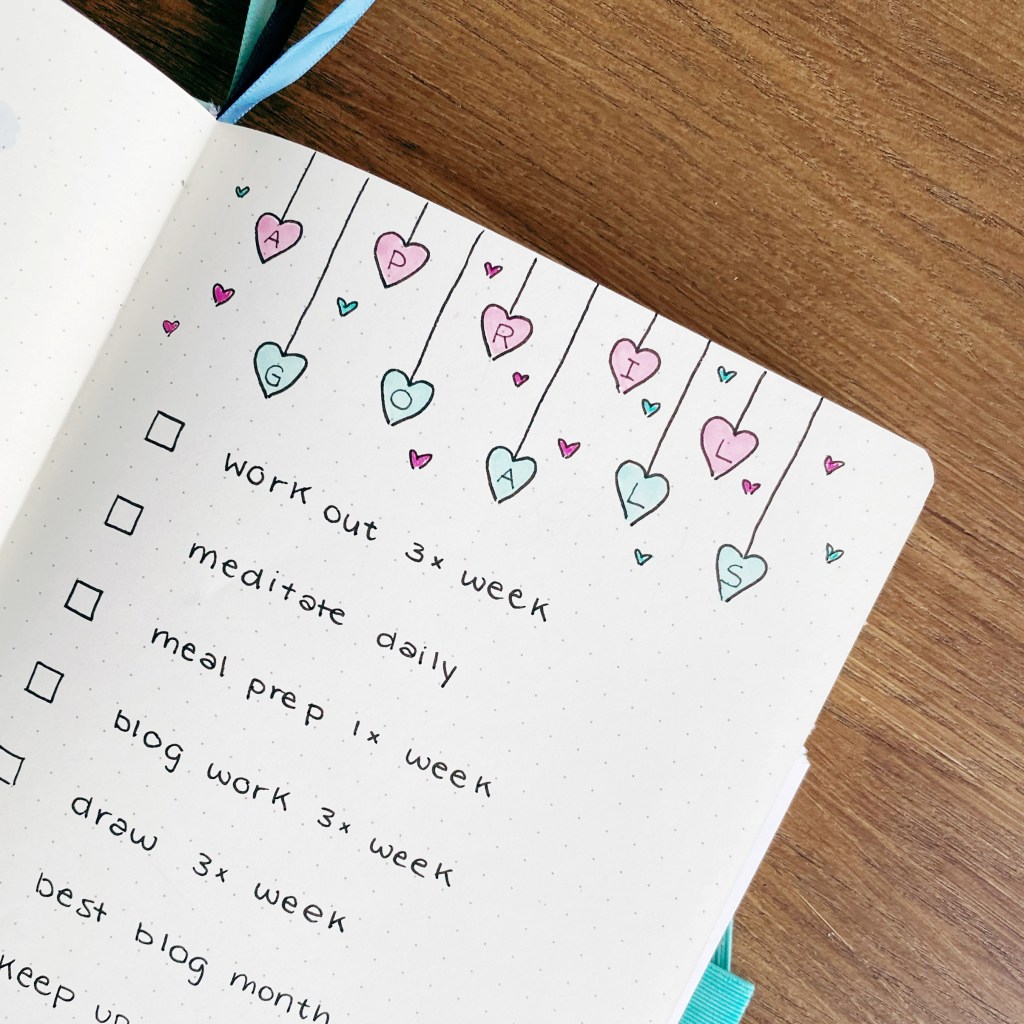 APRIL
GOALS
work out 3x week
meditate daily
meal prep 1x week
blog work 3x week
draw 3x week
best blog month
keep up